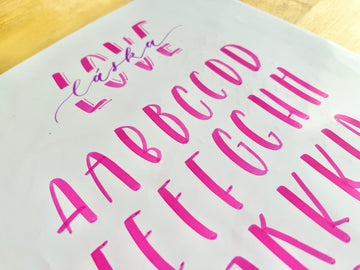 LOVE
láska
AABBCCDD
EEFFGGHH
KK